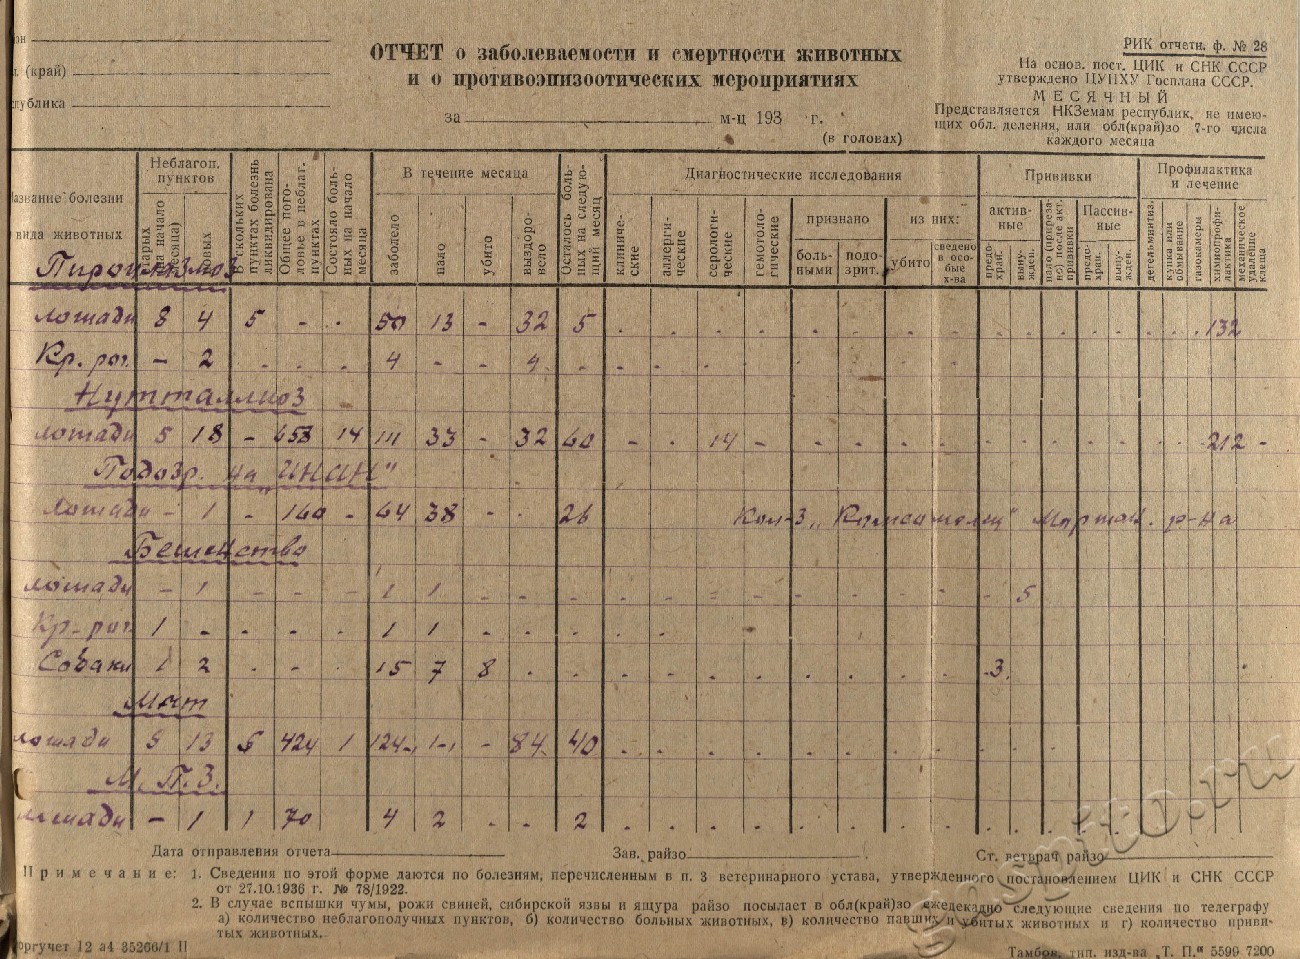 он
л. (край)
спублика
ОТЧЕТ о заболеваемости и смертности животных
и о противоэпизоотических мероприятиях
за м-ц 193 г.
(в головах)
РИК отчетн. ф. № 28
На основ. пост. ЦИК и СНК СССР
утверждено ЦУНХУ Госплана СССР.
МЕСЯЧНЫЙ
Представляется НКЗемам республик, не имею-
щих обл. деления, или обл(край)зо 7-го числа
каждого месяца
Название болезни
и вида животных
Неблагоп.
пунктов
старых
(на начало
месяца)
новых
В скольких
пунктах болезнь
ликвидирована
Общее пого-
ловье в неблаг.
пунктах
Состояло боль-
ных на начало
месяца
В течение месяца
заболело
пало
убито
выздоро-
вело
Осталось боль-
ных на следую-
щий месяц
Диагностические исследования
клиниче-
ские
аллерги-
ческие
серологи-
ческие
гемотоло-
гические
признано
боль-
ными
подо-
зрит.
из них:
убито
сведено
в осо-
бые
х-ва
Прививки
актив-
ные
предо-
хран.
вынуж-
ден.
пало (прирезано)
после акт.
прививки
Пассив-
ные
предо-
хран.
вынуж-
ден.
Профилактика
и лечение
дегельминтиз.
купка или
обмывание
газокамеры
химиопрофи-
лактика
механическое
удаление
клеща
Пироплазмоз
лошади 8 4 5 - - 50 13 - 32 5 132
Кр. рог. - 2 4 - - 4
Нутталлиоз
лошади 5 18 - 658 14 111 33 - 32 60 - - 14 - 212 -
Подозр. на "ИНАН"
лошади - 1 - 160 - 64 38 - - 26 Кол-з „Комсомолец"
Бешенство
лошади - 1 - - - 1 1 5
Кр. рог. 1 - - - - 1 1
Собаки 1 2 - - 15 7 8 3
Мыт
лошади 8 13 6 424 1 124 1 - 84 40
М.П.З.
лошади - 1 1 70 4 2 - - 2
Дата отправления отчета Зав. райзо Ст. ветврач райзо
Примечание: 1. Сведения по этой форме даются по болезням, перечисленным в п. 3 ветеринарного устава, утвержденного постановлением ЦИК и СНК СССР
от 27.10.1936 г. № 78/1922.
2. В случае вспышки чумы, рожи свиней, сибирской язвы и ящура райзо посылает в обл(край)зо ежедекадно следующие сведения по телеграфу
а) количество неблагополучных пунктов, б) количество больных животных, в) количество павших и убитых животных и г) количество приви-
тых животных.
Форгучет 12 а4 35266/1 П
Тамбов, тип. изд-ва „Т. П." 5599 7200